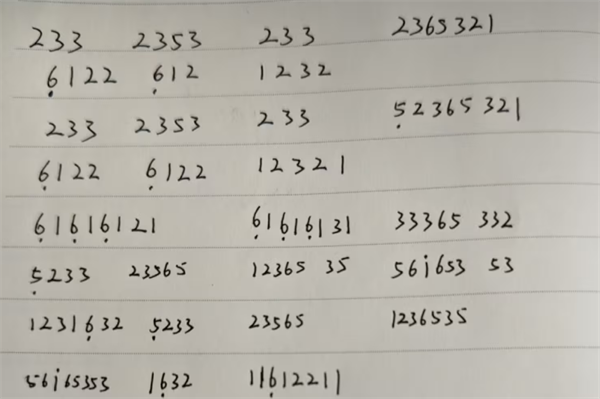 233 2353 233 2365321
6̣122 6̣12 1232
233 2353 233 5̣2365 321
6̣122 6̣122 12321
6̣16̣16̣121 6̣16̣16̣131 33365 332
5̣233 23565 12365 35 56i653 53
12316̣32 5̣233 23565 1236535
56i65353 16̣32 116̣12211